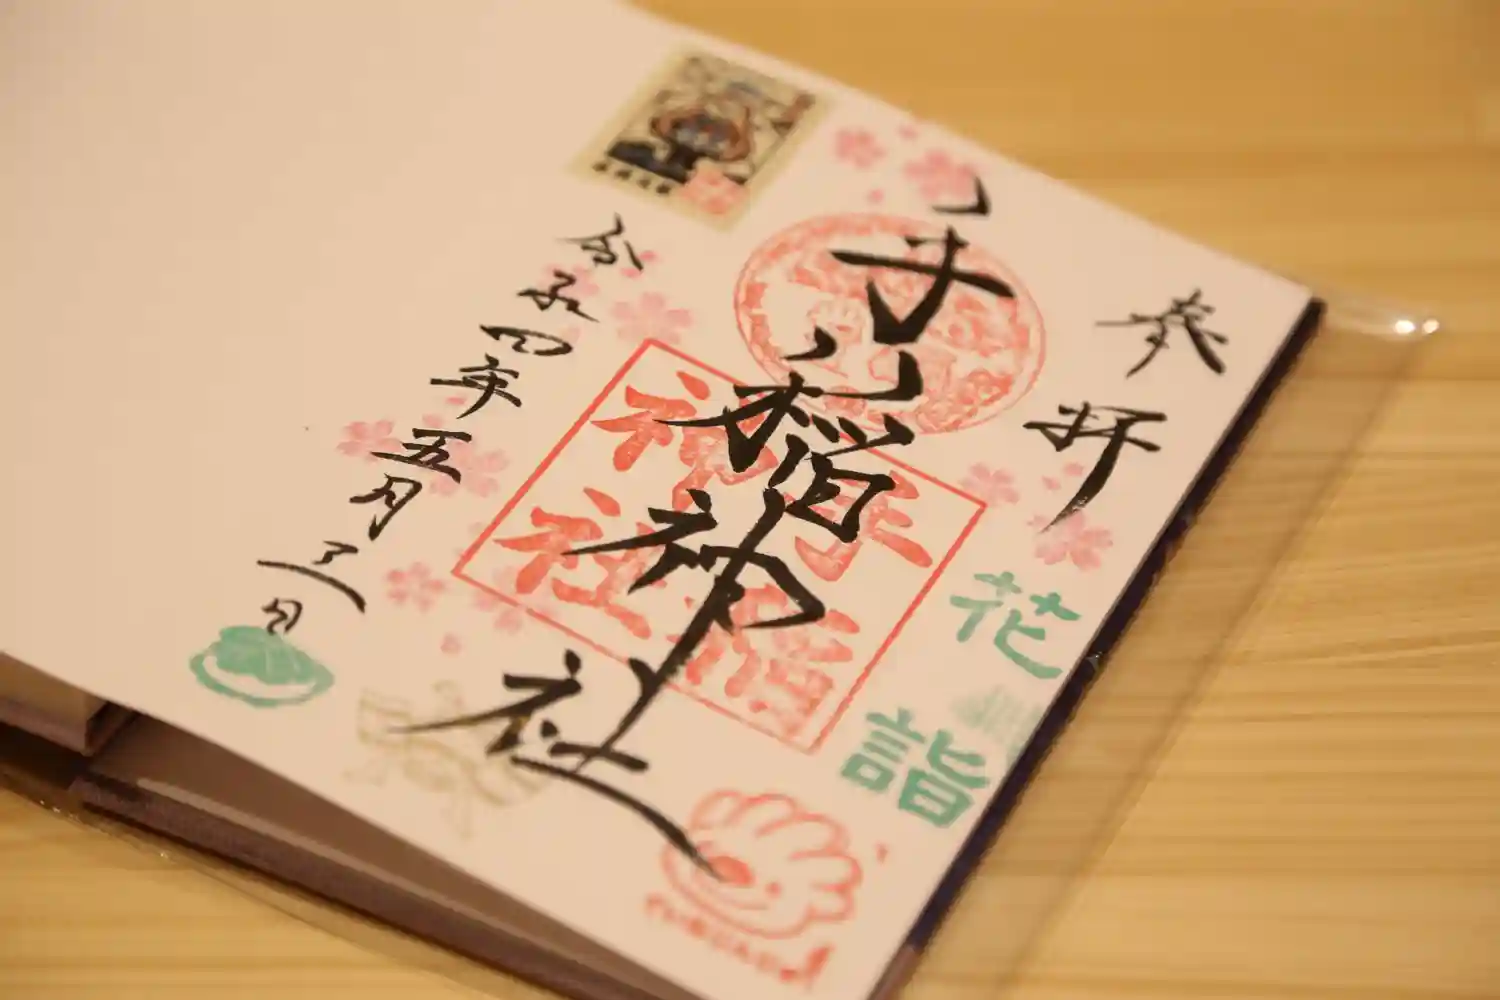 奉拝
花詣
手稲神社
手稲
神社
令和四年五月三日